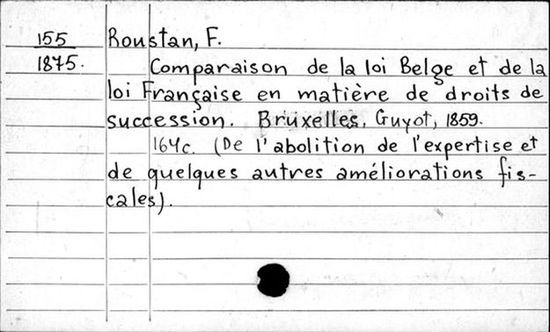 155 Roustan, F.
1875. Comparaison de la loi Belge et de la
loi Française en matière de droits de
succession. Bruxelles, Guyot, 1859.
164c. (De l'abolition de l'expertise et
de quelques autres améliorations fis-
cales).